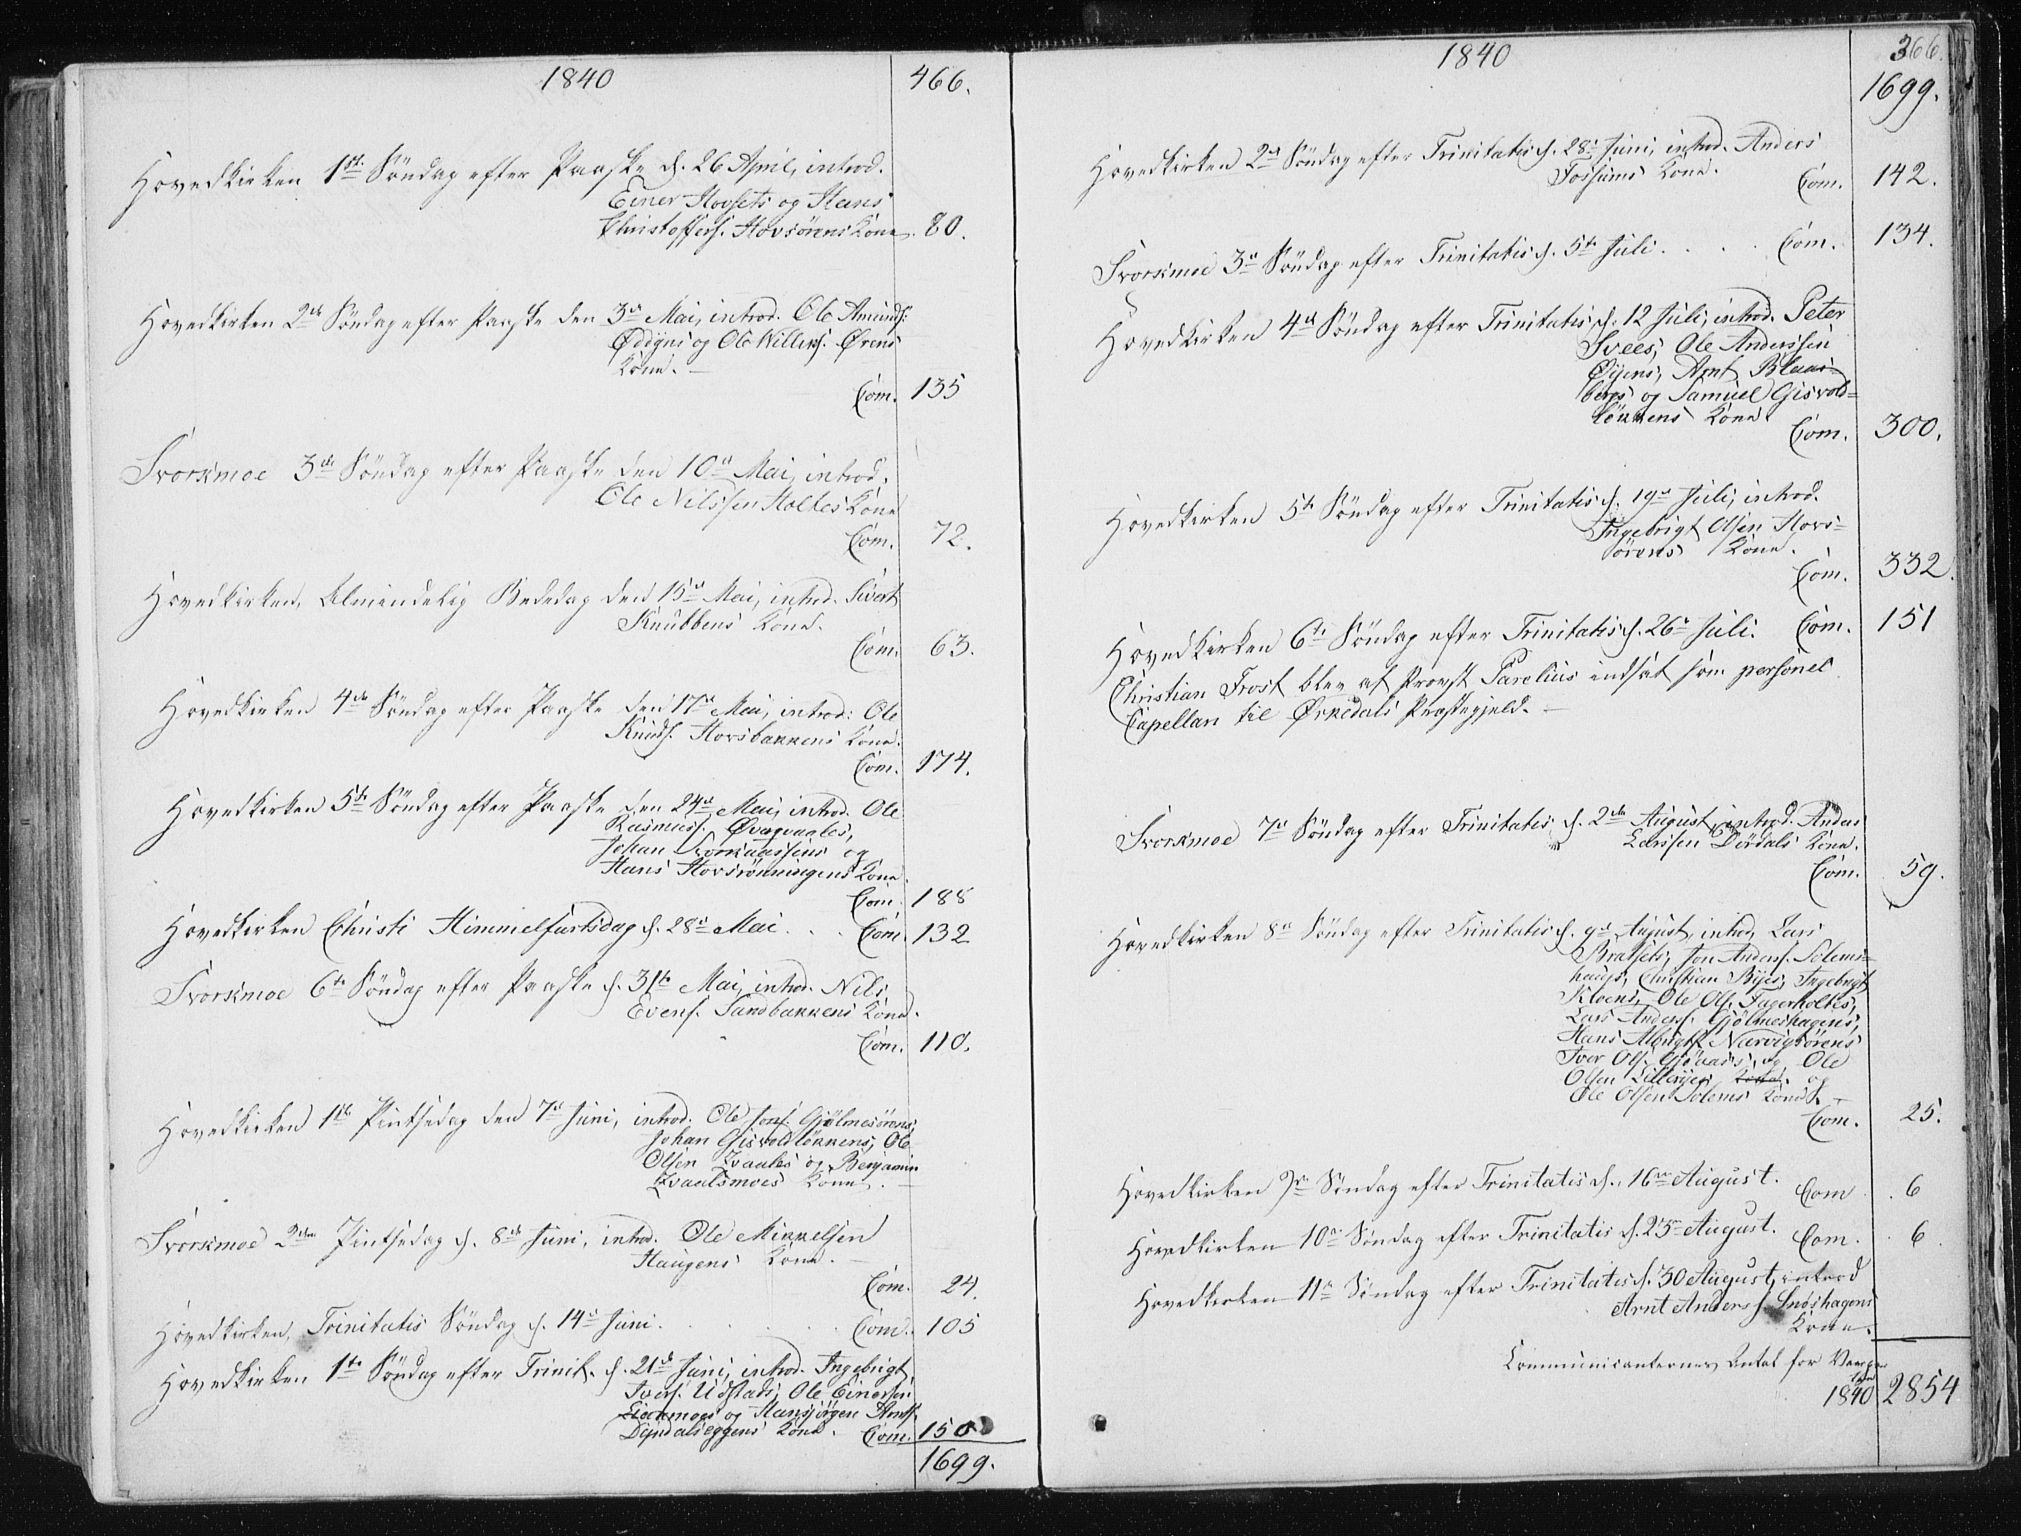 1840
466.
Hovedkirken 1ste Söndag efter Paaske d. 26 April, introd.
Einer Hovsets og Hans
Christoffers. Hovsörens Kone. 80.
Hovedkirken 2de Söndag efter Paaske den 3de Mai, introd. Ole Amunds:
og Ole Willers. Ørens
Kone. —
Com. 135
Svorkmoe 3de Söndag efter Paaske den 10de Mai, introd.
Ole Nilssen Holtes Kone
Com. 72.
Hovedkirken, Almindelig Bededag den 15de Mai, introd. Sivert
Knubbens Kone.
Com. 63.
Hovedkirken 4de Söndag efter Paaske den 17de Mai, introd: Ole
Knuds. Hovsbakkens Kone.
Com. 174.
Hovedkirken 5te Söndag efter Paaske den 24de Mai, introd. Ole
Rasmus.
Johan og
Hans Hovsrönningens Kone.
Com. 188
Hovedkirken Christi Himmelfartsdag d. 28de Mai . . . Com. 132
Svorkmoe 6te Söndag efter Paaske d. 31te Mai, introd. Nils
Evens. Sandbakkens Kone.
Com. 110.
Hovedkirken 1ste Pintsedag den 7de Juni, introd. Ole Jons. Gjölmesörens,
Johan Gisvoldlökkens, Ole
Olsen Evaales og Benjamin
Evaalsmoes Kone. —
Svorkmoe 2den Pintsedag d. 8de Juni, introd. Ole Mikkelsen
Haugens Kone. —
Com. 24.
Hovedkirken, Trinitatis Söndag d. 14de Juni . . . . . Com. 105
Hovedkirken 1ste Söndag efter Trinit. d. 21de Juni, introd. Ingebrigt
Ivers. Udstads, Ole Einersen
og Hansjörgen Arnts.
Kone. Com. 150
1699.
1840
366.
1699.
Hovedkirken 2de Söndag efter Trinitatis d. 28de Juni, introd. Anders
Fossums Kone.
Com. 142.
Svorkmoe 3de Söndag efter Trinitatis d. 5te Juli . . . . Com. 134.
Hovedkirken 4de Söndag efter Trinitatis d. 12 Juli, introd. Peter
Svees, Ole Anderssen
Öyens, Arnt Blaas-
bergs og Samuel Gisvold-
lökkens Kone.
Com. 300.
Hovedkirken 5te Söndag efter Trinitatis d. 19de Juli, introd.
Ingebrigt Olsen Hovs-
örens Kone.
Com. 332.
Hovedkirken 6te Söndag efter Trinitatis d. 26de Juli. Com. 151
Christian Frost blev af Provst Parelius indsat som personel
Capellan til Ørkedals Præstegjeld. —
Svorkmoe 7de Söndag efter Trinitatis d. 2de August, introd. Anders
Larssen Dördals Kone.
Com. 59.
Hovedkirken 8de Söndag efter Trinitatis d. 9de August, introd. Lars
Bratsets, Jon Anders. Solems-
haugs, Christian Byes, Ingebrigt
Kloens, Ole Ols. Fagerholtes,
Lars Anders. Gjölmeshagens,
Hans Albrigts. Narvigsörens,
Iver Ols. og Ole
Olsen og
Ole Olsen Solems Kone. —
Com. 25.
Hovedkirken 9de Söndag efter Trinitatis d. 16de August. Com. 6
Hovedkirken 10de Söndag efter Trinitatis d. 23de August. Com. 6
Hovedkirken 11te Söndag efter Trinitatis d. 30 August, introd
Arnt Anders. Snöshagens
Kone.
Communicanternes Antal for
1840 2854